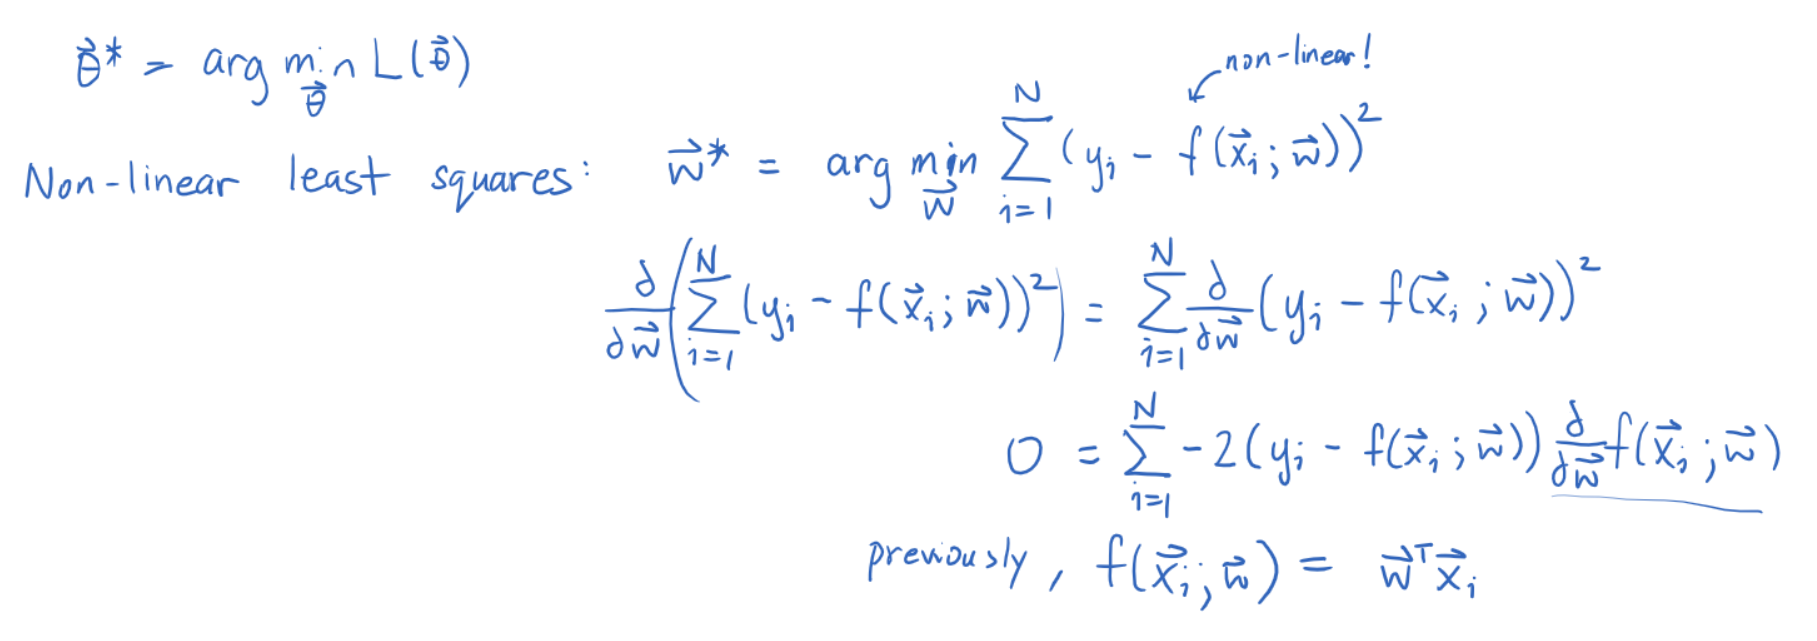 $\vec{\theta}^* = \arg\min_{\vec{\theta}} L(\vec{\theta})$
non-linear!
Non-linear least squares: $\vec{w}^* = \arg\min_{\vec{w}} \sum_{i=1}^{N} (y_i - f(\vec{x}_i; \vec{w}))^2$
$\frac{\partial}{\partial \vec{w}} \left( \sum_{i=1}^{N} (y_i - f(\vec{x}_i; \vec{w}))^2 \right) = \sum_{i=1}^{N} \frac{\partial}{\partial \vec{w}} (y_i - f(\vec{x}_i; \vec{w}))^2$
$0 = \sum_{i=1}^{N} -2(y_i - f(\vec{x}_i; \vec{w})) \frac{\partial}{\partial \vec{w}} f(\vec{x}_i; \vec{w})$
previously, $f(\vec{x}_i; \vec{w}) = \vec{w}^T \vec{x}_i$